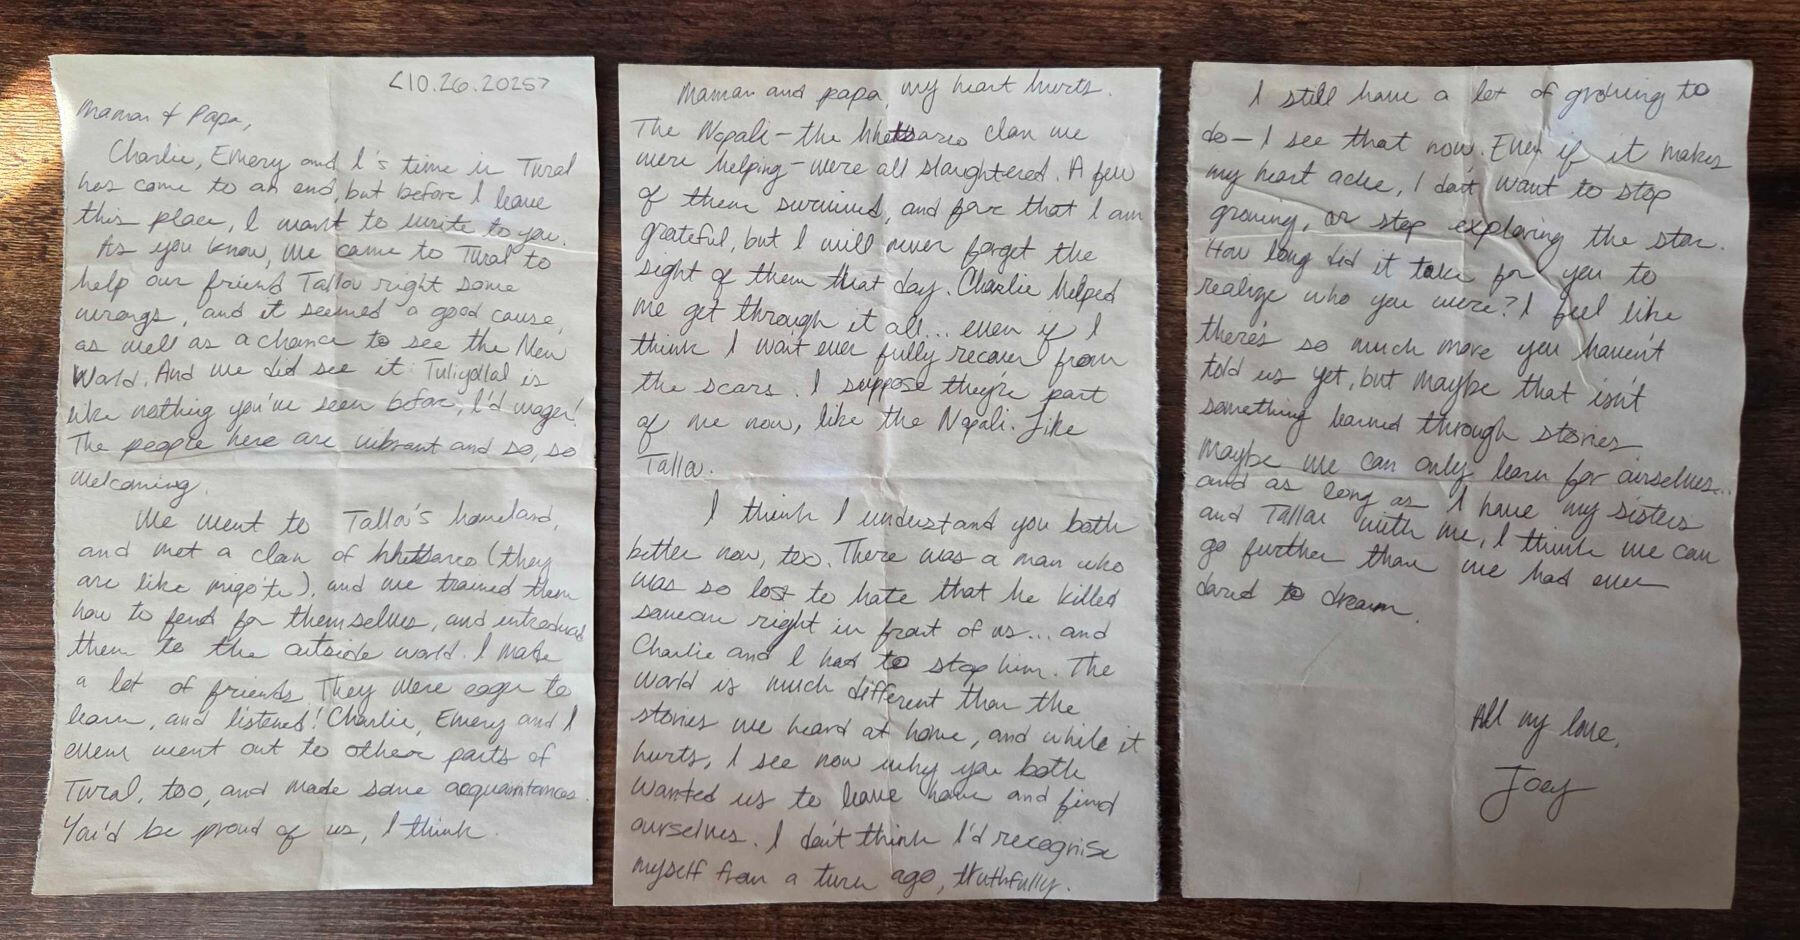 <10.26.2025>
Maman & Papa,
Charlie, Emery and I's time in Tural
has come to an end, but before I leave
this place, I want to write to you.
As you know, we came to Tural to
help our friend Talla right some
wrongs, and it seemed a good cause,
as well as a chance to see the New
World. And we did see it: Tuliyollal is
like nothing you've seen before, I'd wager!
The people here are vibrant and so, so
welcoming.
We went to Talla's homeland,
and met a clan of hhetsarro (they
are like miqo'te), and we trained them
how to fend for themselves, and introduced
them to the outside world. I made
a lot of friends. They were eager to
learn, and listened! Charlie, Emery and I
even went out to other parts of
Tural, too, and made some acquaintances.
You'd be proud of us, I think.
Maman and papa, my heart hurts.
The Nopali – the hhetsarro clan we
were helping – were all slaughtered. A few
of them survived, and for that I am
grateful, but I will never forget the
sight of them that day. Charlie helped
me get through it all... even if I
think I won't ever fully recover from
the scars. I suppose they're part
of me now, like the Nopali. Like
Talla.
I think I understand you both
better now, too. There was a man who
was so lost to hate that he killed
someone right in front of us... and
Charlie and I had to stop him. The
world is much different than the
stories we heard at home, and while it
hurts, I see now why you both
wanted us to leave home and find
ourselves. I don't think I'd recognise
myself from a turn ago, truthfully.
I still have a lot of growing to
do – I see that now. Even if it makes
my heart ache, I don't want to stop
growing, or stop exploring the star.
How long did it take for you to
realize who you were? I feel like
there's so much more you haven't
told us yet, but maybe that isn't
something learned through stories
Maybe we can only learn for ourselves...
and as long as I have my sisters
and Talla with me, I think we can
go further than we had ever
dared to dream.
All my love,
Joey